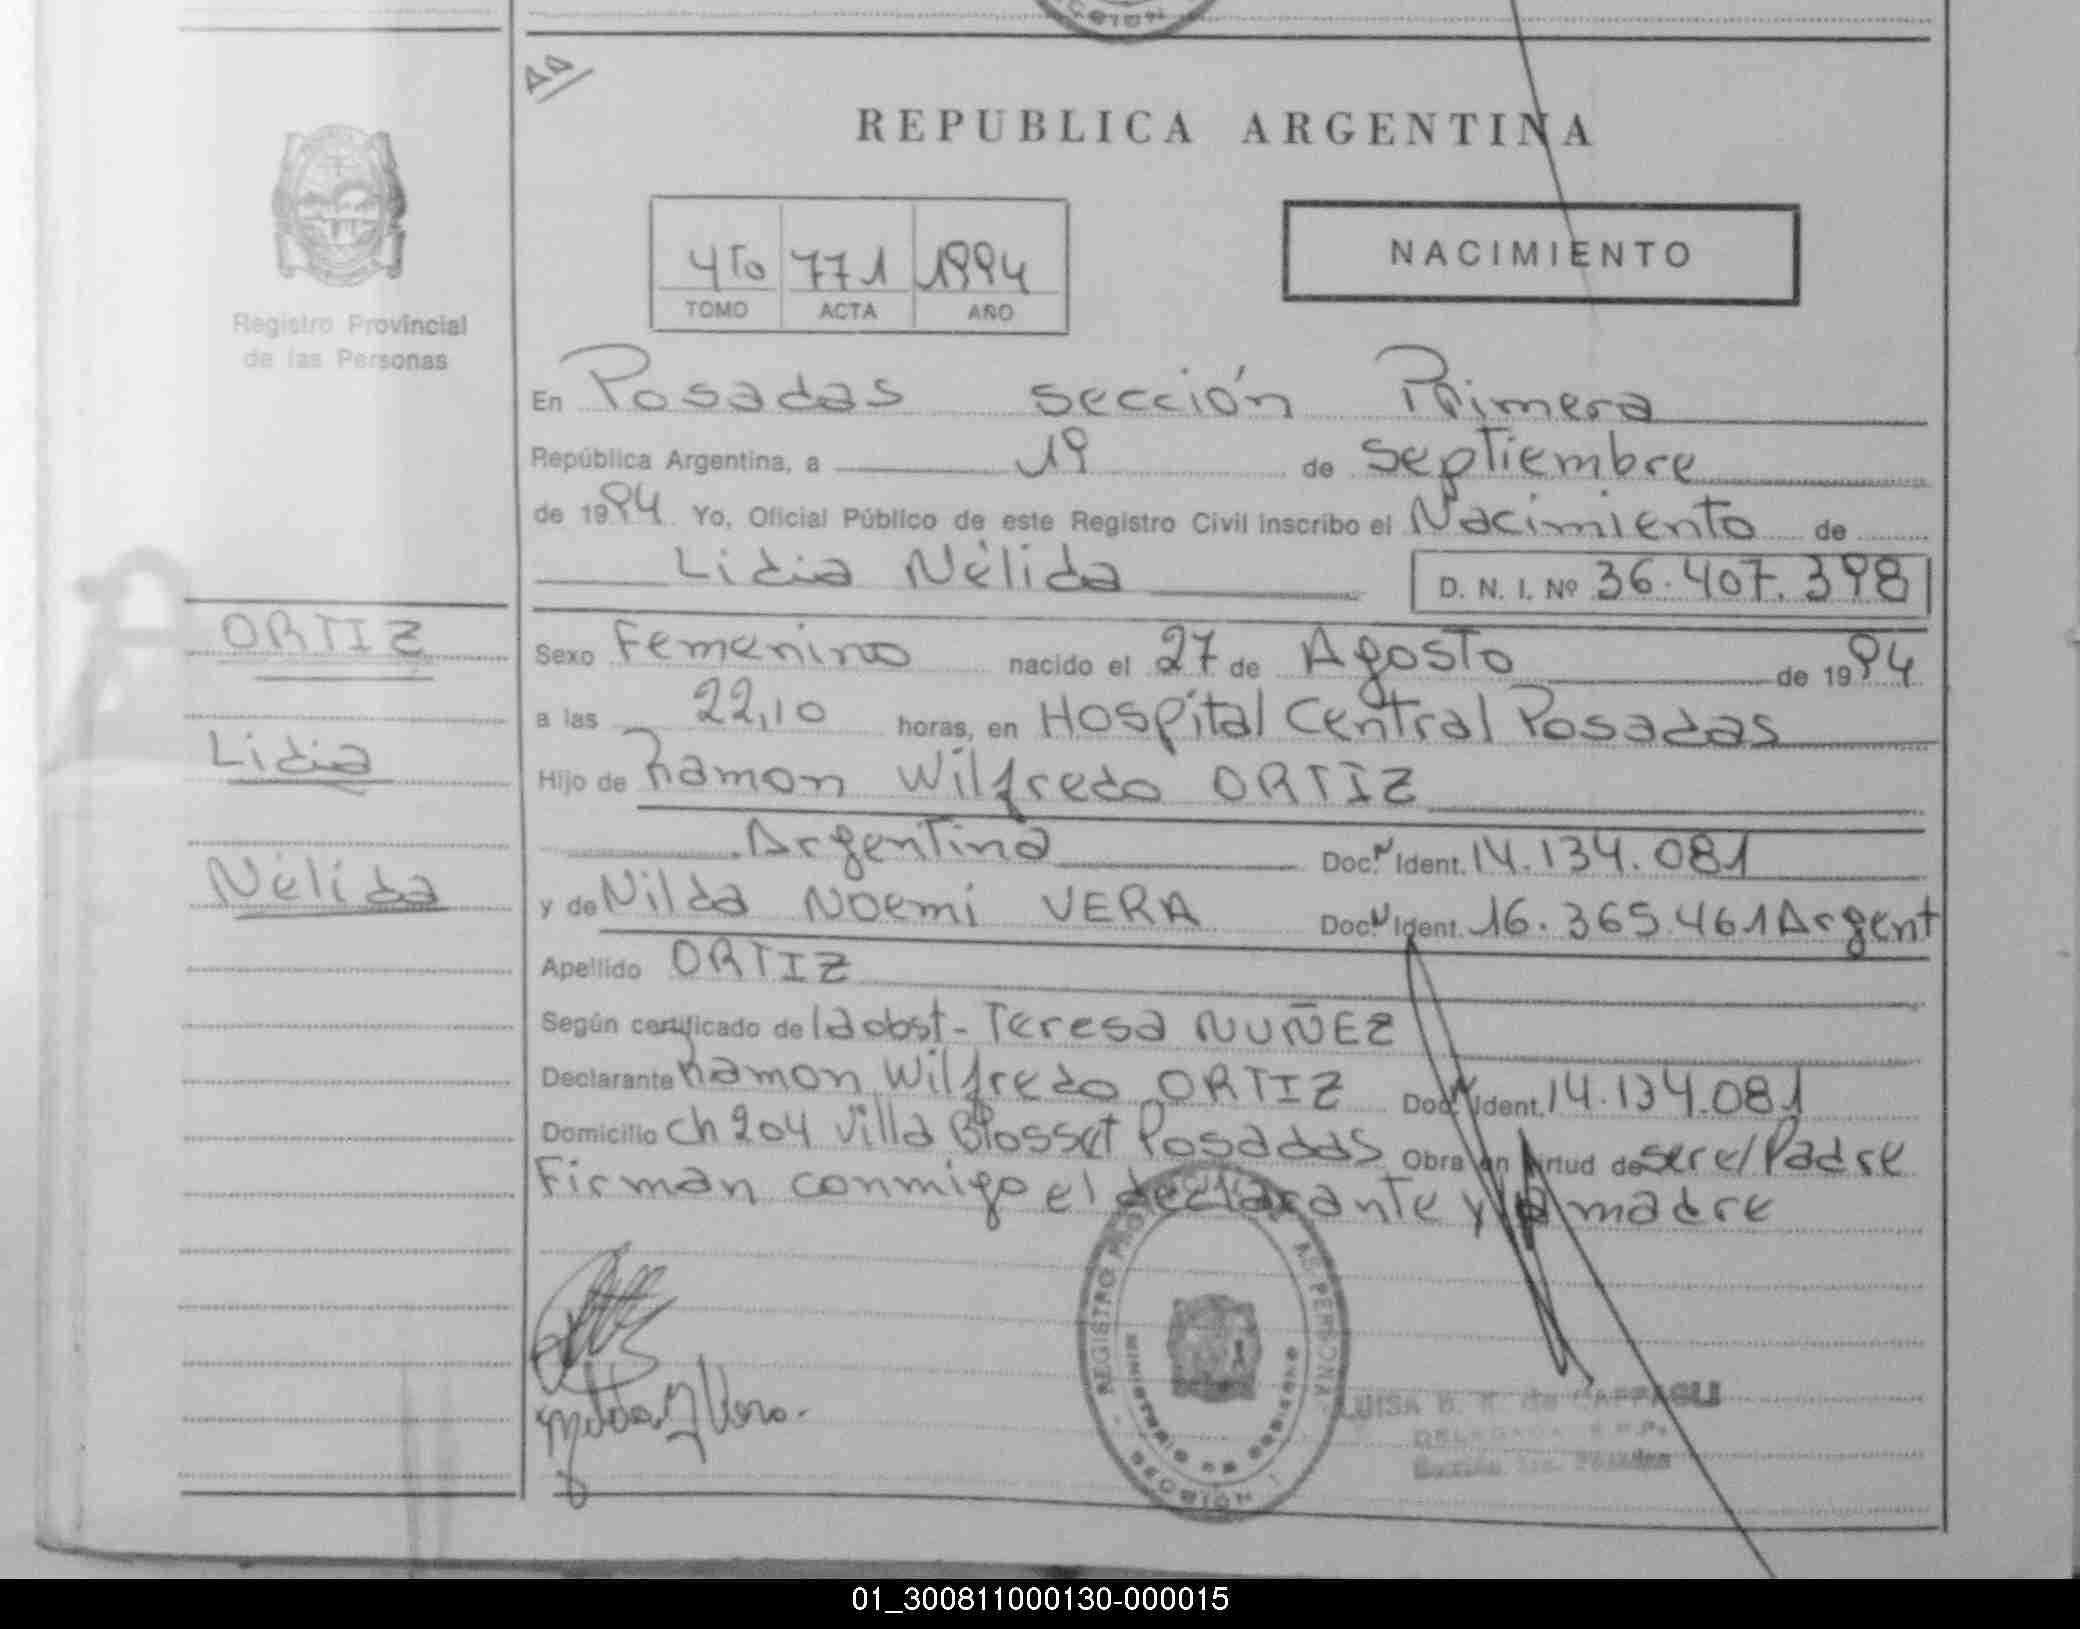 REPUBLICA ARGENTINA
Registro Provincial
de las Personas
4To 771 1994
TOMO ACTA AÑO
NACIMIENTO
En Posadas sección Primera
República Argentina, a 19 de Septiembre
de 1994 Yo, Oficial Público de este Registro Civil inscribo el Nacimiento de
Lidia Nélida D. N. I. Nº 36.407.398
ORTIZ
Lidia
Nélida
Sexo Femenino nacido el 27 de Agosto de 1994
a las 22,10 horas, en Hospital Central Posadas
Hijo de Ramon Wilfredo ORTIZ
Argentina Doc. N Ident. 14.134.081
y de Nilda Noemí VERA Doc. N Ident. 16.365.461 Argent
Apellido ORTIZ
Según certificado de la obst- Teresa NUÑEZ
Declarante Ramon Wilfredo ORTIZ Doc. N Ident. 14.134.081
Domicilio ch 204 Villa Blosset Posadas Obra en virtud de ser el Padre
Firman conmigo el declarante y la madre
REGISTRO PROVINCIAL PERSONAS
MINISTERIO DE GOBIERNO
SECCIÓN
LUISA B. K. de
DELEGADA R.P.P.
Sección 1ra. Posadas
01_300811000130-000015